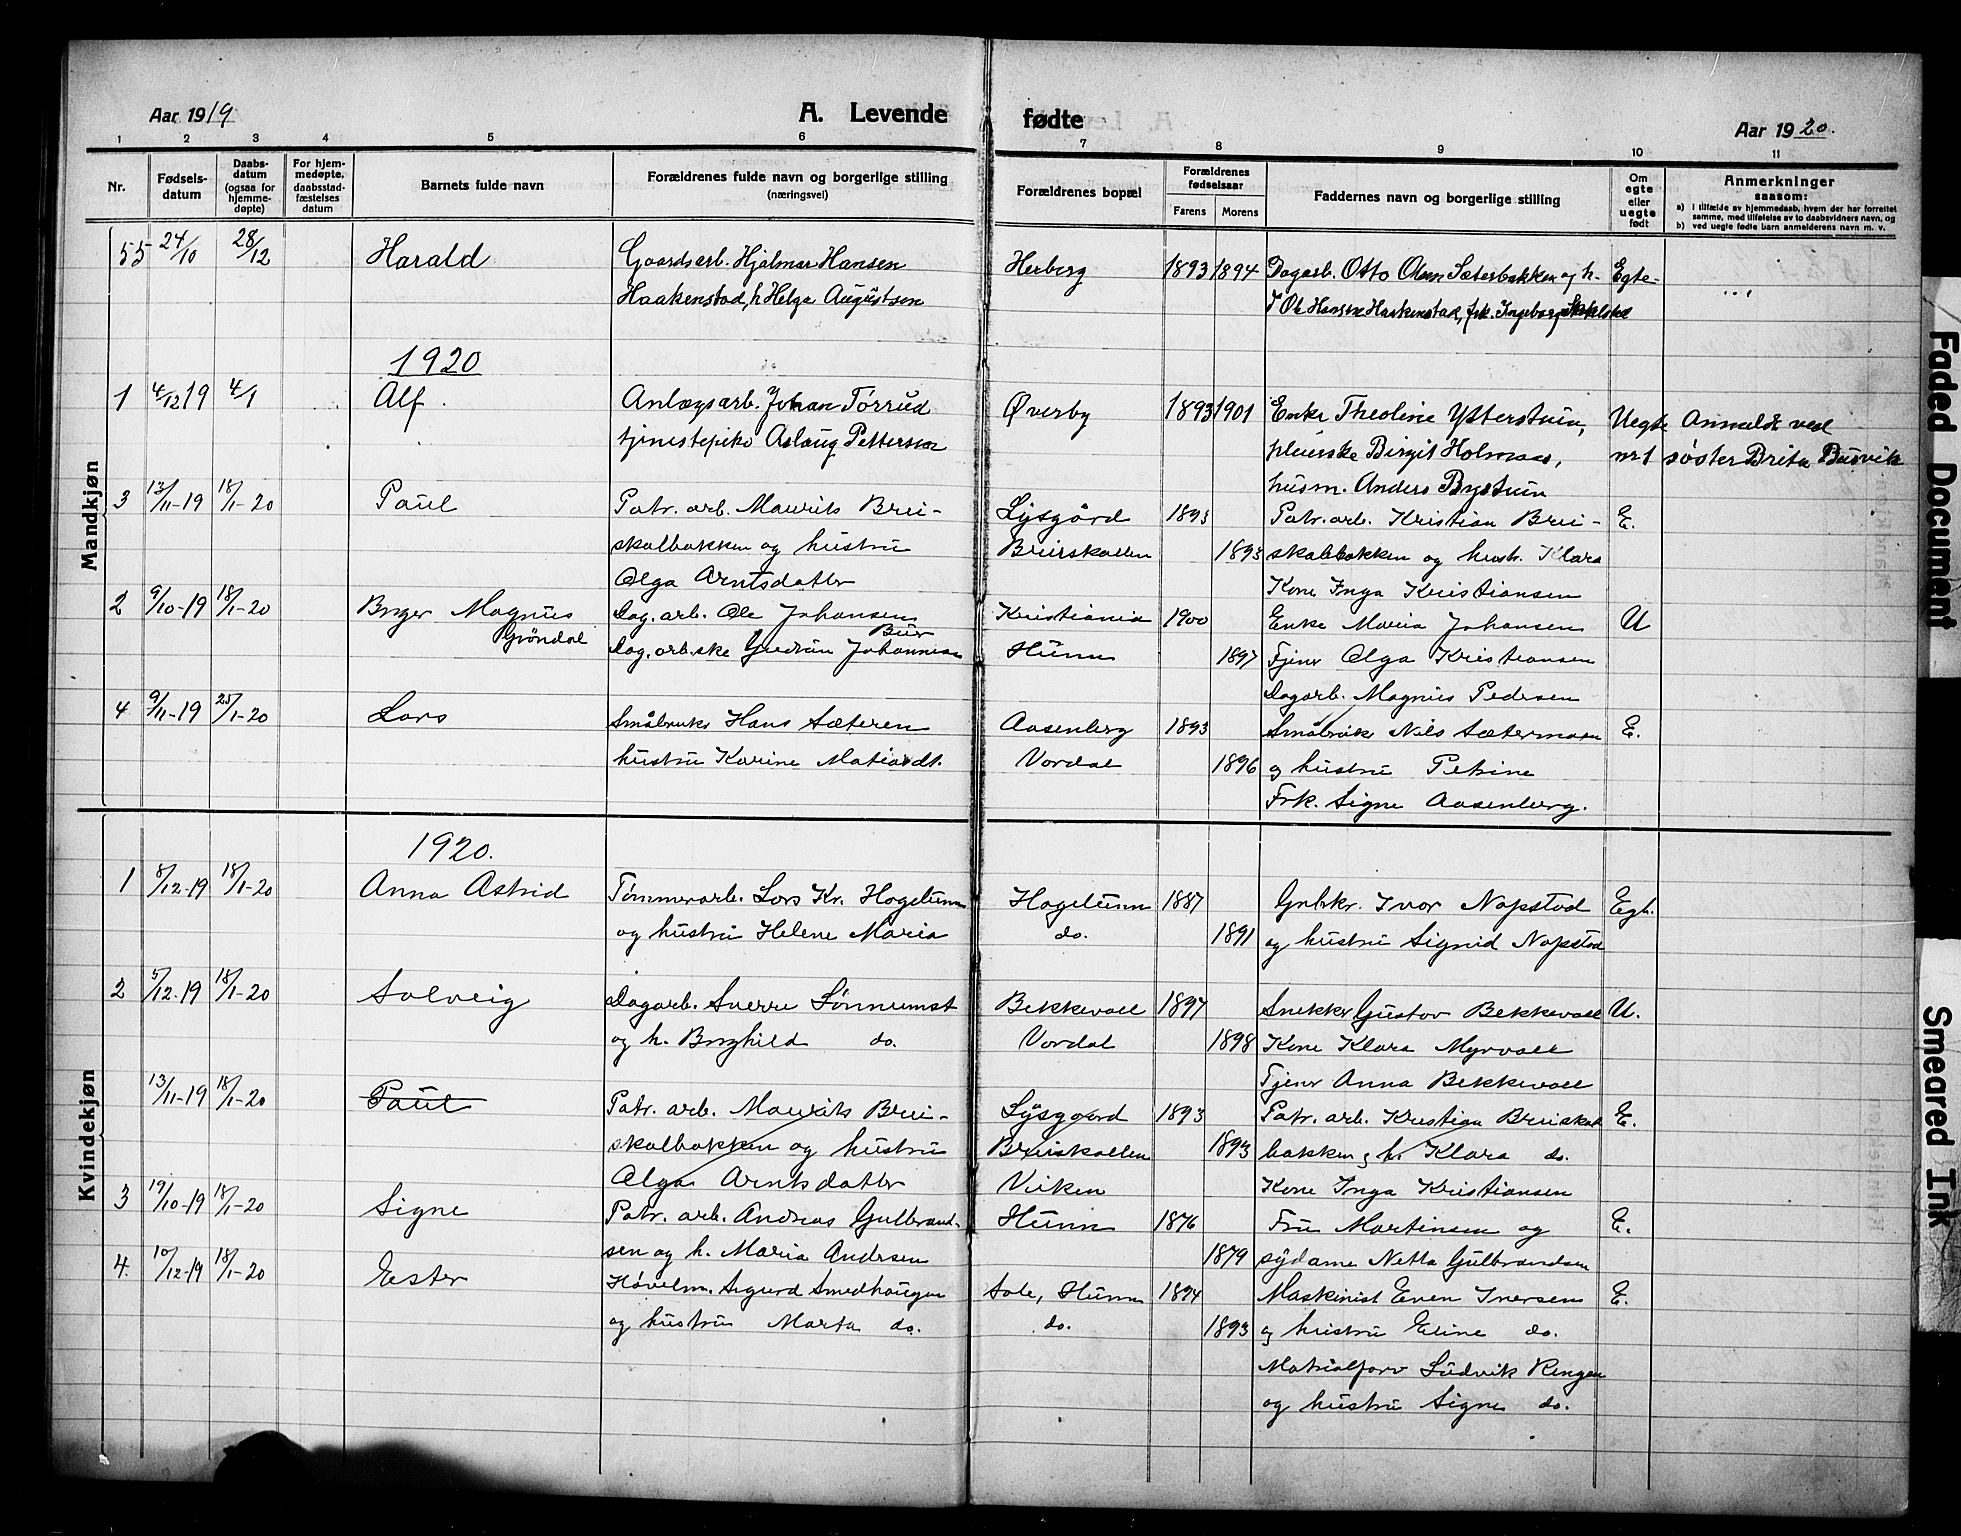 Aar 1919
A. Levende
fødte
Aar 1920.
1 2 3 4 5 6 7 8 9 10 11
Nr.
Fødsels-
datum
Daabs-
datum
(ogsaa for
hjemme-
døpte)
For hjem-
medøpte,
daabsstad-
fæstelses
datum
Barnets fulde navn
Forældrenes fulde navn og borgerlige stilling
(næringsvei)
Forældrenes bopæl
Forældrenes
fødselsaar
Farens Morens
Faddernes navn og borgerlige stilling
Om
egte
eller
uegte
født
Anmerkninger
saasom:
a) I tilfælde av hjemmedaab, hvem der har forrettet
samme, med tilføielse av to daabsvidners navn, og
b) ved uegte fødte barn anmelderens navn m. v.
Mandkjøn
55 24/10 28/12 Harald Gaardsarb. Hjalmar Hansen Herberg 1893 1894 Dagarb. Otto Olsen Sæterbakken og h. Egte
Haakenstad, h Helga Augustsen Ole Hansen Haakenstad, frk. Ingeborg
1920
1 4/12 19 4/1 Alf. Anlægsarb. Johan Tørrud Øverby 1893 1901 Enke Theoline Ytterstuin, Uegte Anmeldt ved
tjenestepike Aslaug Pettersen pleierske Birgit Holmaas, nr 1 søster Brita Busvik
husm. Anders Bystuin
3 13/11-19 18/1-20 Paul Patr. arb. Maurits Brei- Lysgård 1893 Patr. arb. Kristian Brei- E.
skalbakken og hustru Breiskallen 1893 skalbakken og hust. Klara
Olga Arntsdatter Kone Inga Kristiansen
2 9/10-19 18/1-20 Birger Magnus Dag. arb. Ole Johansen Kristiania 1900 Enke Maria Johansen U
Grøndal Dag. arb.ske Gudrun Johannesen Hunn 1897 Tjener Olga Kristiansen
Dagarb. Magnus Pedersen
4 9/11-19 25/1-20 Lars Småbruker Hans Sæteren Aasenberg 1893 Småbruker Nils Sætermoen E.
hustru Karine Matiasdt. Vardal 1896 og hustru Petrine
Frk. Signe Aasenberg.
Kvindekjøn
1920.
1 8/12-19 18/1-20 Anna Astrid Tømmerarb. Lars Kr. Hagelunn Hagelunn 1887 Grbkr. Ivar Napstad Egt.
og hustru Helene Maria do. 1891 og hustru Signid Napstad
2 5/12-19 18/1-20 Solveig Dagarb. Sverre Sønnumst Bekkevoll 1897 Snekker Gustav Bekkevoll U.
og h. Borghild do. Vardal 1898 Kone Klara Myrvoll
Tjener Anna Bekkevoll
13/11-19 18/1-20 Paul Patr. arb. Maurits Brei- Lysgaard 1893 Patr. arb. Kristian Breiskal E.
skalbakken og hustru Breiskallen 1893 bakken og h. Klara do.
Olga Arntsdatter Viken Kone Inga Kristiansen
3 19/10-19 18/1-20 Signe Patr. arb. Andreas Gulbrand- Hunn 1876 Fru Martinsen og E.
sen og h. Maria Andersen 1879 sydame Netta Gulbrandsen
4. 10/12-19 18/1-20 Ester Høvelm. Sigurd Smedhaugen Sole, Hunn 1894 Maskinist Even Iversen E.
og hustru Marta do. do. 1893 og hustru Eline do.
Matrialforv Ludvik Ringen
og hustru Signe do.
Faded Document
Smeared Ink